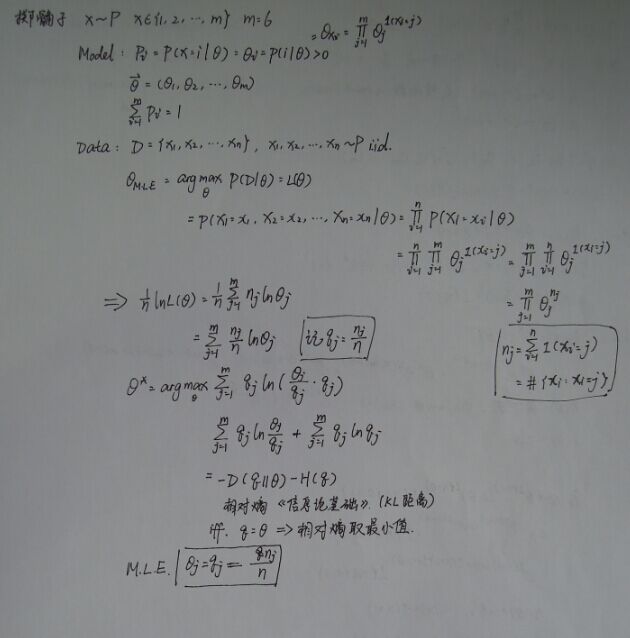 掷骰子 x~P x∈{1, 2, ⋯, m} m=6
Model: Pᵢ = P(x=i|θ) = θᵢ = P(i|θ) > 0
= θₓᵢ = ∏_{j=1}^{m} θⱼ^{1(xᵢ=j)}
θ⃗ = (θ₁, θ₂, ⋯, θₘ)
∑_{i=1}^{m} Pᵢ = 1
Data: D = {x₁, x₂, ⋯, xₙ}, x₁, x₂, ⋯, xₙ ~P iid.
θ_{MLE} = argmax_θ P(D|θ) = L(θ)
= P(X₁=x₁, X₂=x₂, ⋯, Xₙ=xₙ|θ) = ∏_{i=1}^{n} P(Xᵢ=xᵢ|θ)
= ∏_{i=1}^{n} ∏_{j=1}^{m} θⱼ^{1(xᵢ=j)} = ∏_{j=1}^{m} ∏_{i=1}^{n} θⱼ^{1(xᵢ=j)}
= ∏_{j=1}^{m} θⱼ^{nⱼ}
nⱼ = ∑_{i=1}^{n} 1(xᵢ=j)
= #{xᵢ: xᵢ=j}
⟹ 1/n lnL(θ) = 1/n ∑_{j=1}^{m} nⱼ lnθⱼ
= ∑_{j=1}^{m} nⱼ/n lnθⱼ 记 qⱼ = nⱼ/n
θ* = argmax_θ ∑_{j=1}^{m} qⱼ ln(θⱼ/qⱼ · qⱼ)
∑_{j=1}^{m} qⱼ ln θⱼ/qⱼ + ∑_{j=1}^{m} qⱼ ln qⱼ
= -D(q||θ) - H(q)
相对熵 《信息论基础》. (KL距离)
iff. q=θ => 相对熵取最小值.
M.L.E. θⱼ = qⱼ = nⱼ/n